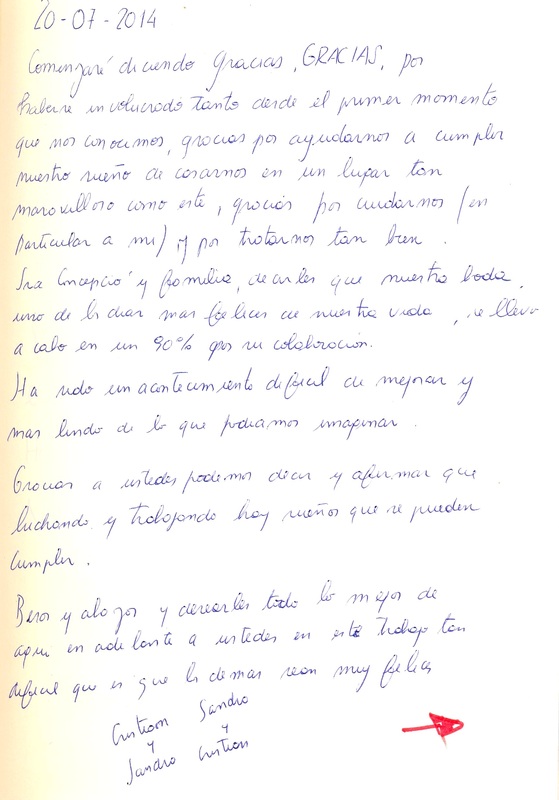 20-07-2014
Comenzaré diciendo Gracias, GRACIAS, por
haberse involucrado tanto desde el primer momento
que nos conocimos, gracias por ayudarnos a cumplir
nuestro sueño de casarnos en un lugar tan
maravilloso como este, gracias por cuidarnos (en
particular a mi) y por tratarnos tan bien.
Sra Concepció y familia, decirles que nuestra boda,
uno de los dias mas felices de nuestra vida, se llevo
a cabo en un 90% por su colaboración.
Ha sido un acontecimiento dificil de mejorar y
mas lindo de lo que podiamos imaginar.
Gracias a ustedes podemos decir y afirmar que
luchando y trabajando hay sueños que se pueden
cumplir.
Besos y abazos y desearles todo lo mejor de
aqui en adelante a ustedes en este trabajo tan
dificil que es que los demas sean muy felices
Cristian Sandra
y y
Sandra Cristian